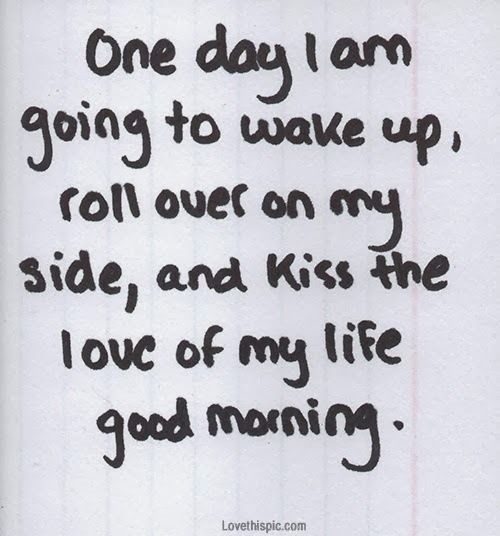 One day I am
going to wake up,
roll over on my
side, and kiss the
love of my life
good morning.
Lovethispic.com